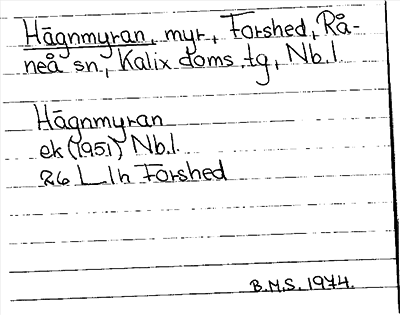 Hägnmyran, myr, Forshed, Rå-
neå sn, Kalix doms.tg, Nb.l.
Hägnmyran
ek (1951) Nb.l.
26 L l h Forshed
B.M.S. 1974.